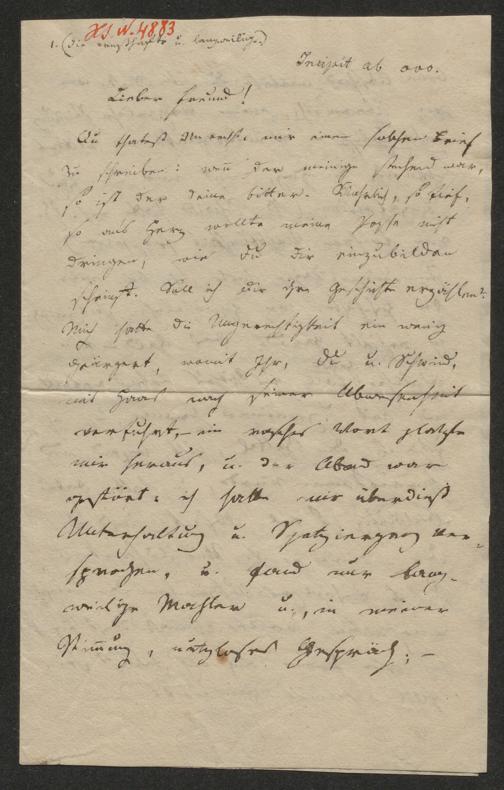 XI W. 4883
1. (Die ernsthafte u. langweilige.)
ab ooo.
Lieber Freund!
Du thatest Unrecht, mir einen solchen Brief
zu schreiben: wenn der meinige stechend war,
so ist der deine bitter. Wahrlich, so tief,
so ans Herz wollte meine Posse nicht
dringen, wie du dir einzubilden
scheinst. Soll ich dir ihre Geschichte erzählen?
Mich hatte die Ungerechtigkeit ein wenig
geärgert, womit Ihr, du u. Schwind,
mit Haas nach seiner Abwesenheit
verfuhrt, ein rasches Wort platzte
mir heraus, u. der Abend war
gestört: ich hatte mir überdieß
Unterhaltung u. Spatziergang ver-
sprochen, u. fand nur lang-
weilige Mahler u., in meiner
Stimmung, nutzloses Gespräch; –